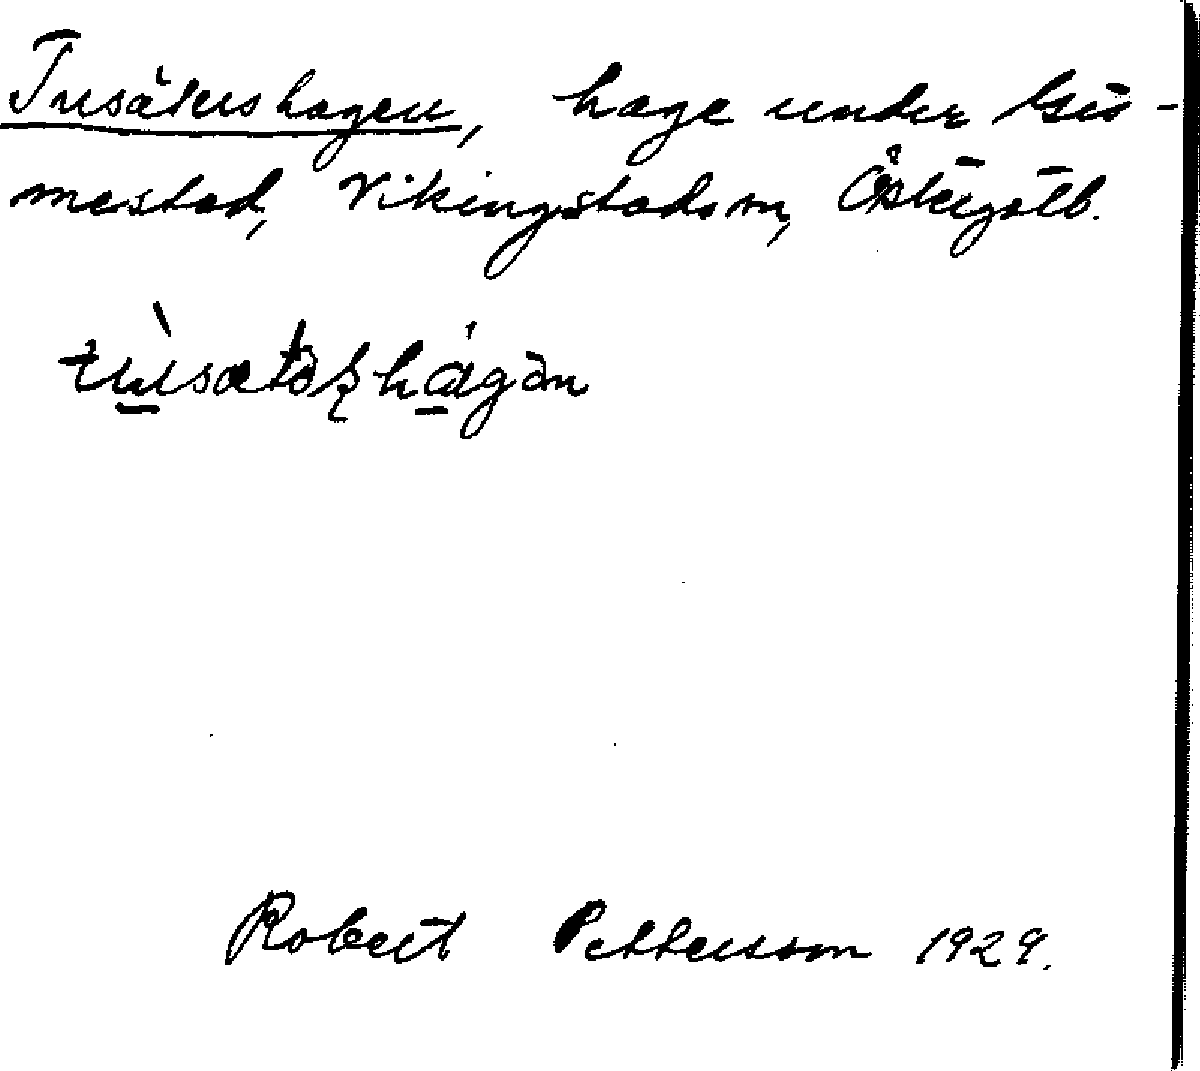 Tusätershagen, hage under Gis-
mestad, Vikingstads sn, Östergötl.
Robert Pettersson 1929.